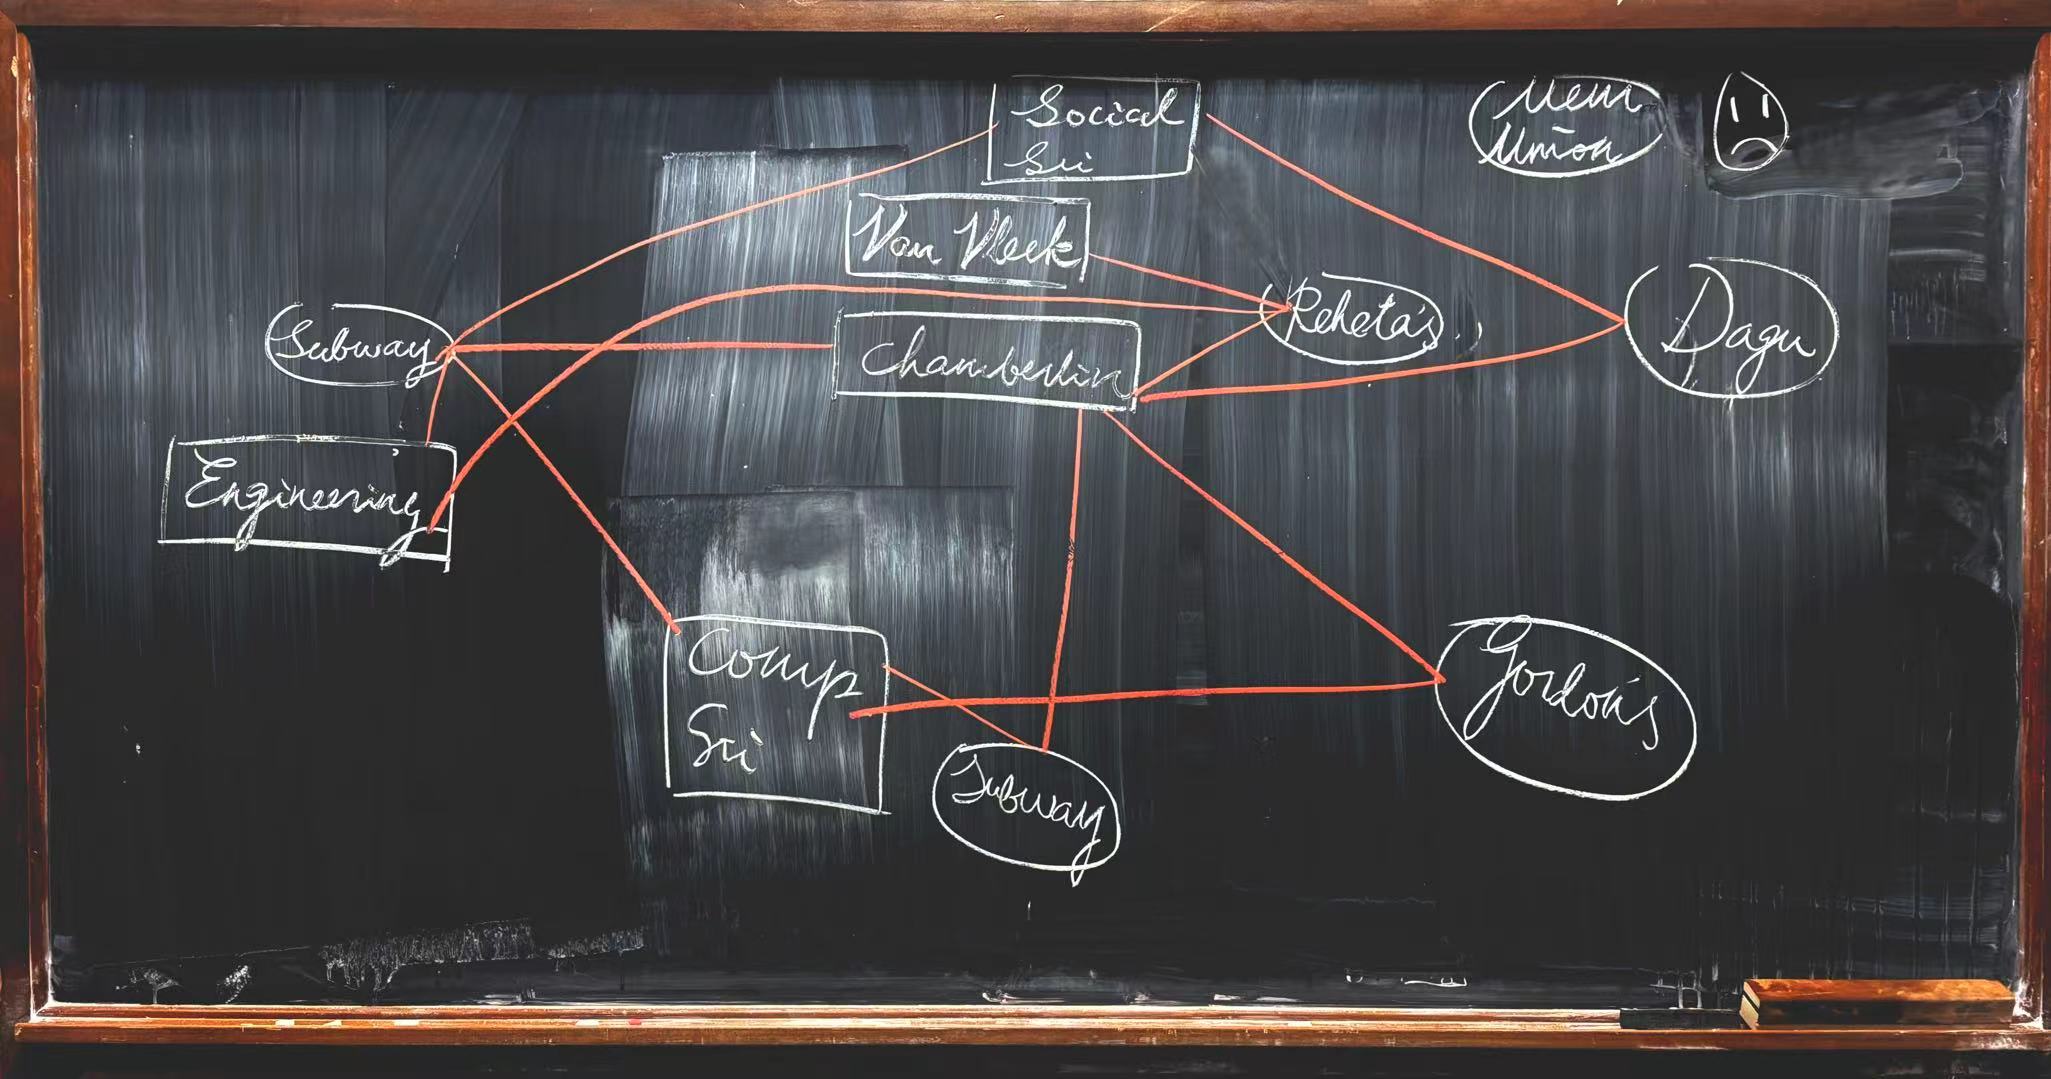 Social
Sci
Mem
Union
Van Vleck
Reheta's
Subway
Chamberlin
Dagu
Engineering
Comp
Sci
Gordon's
Subway